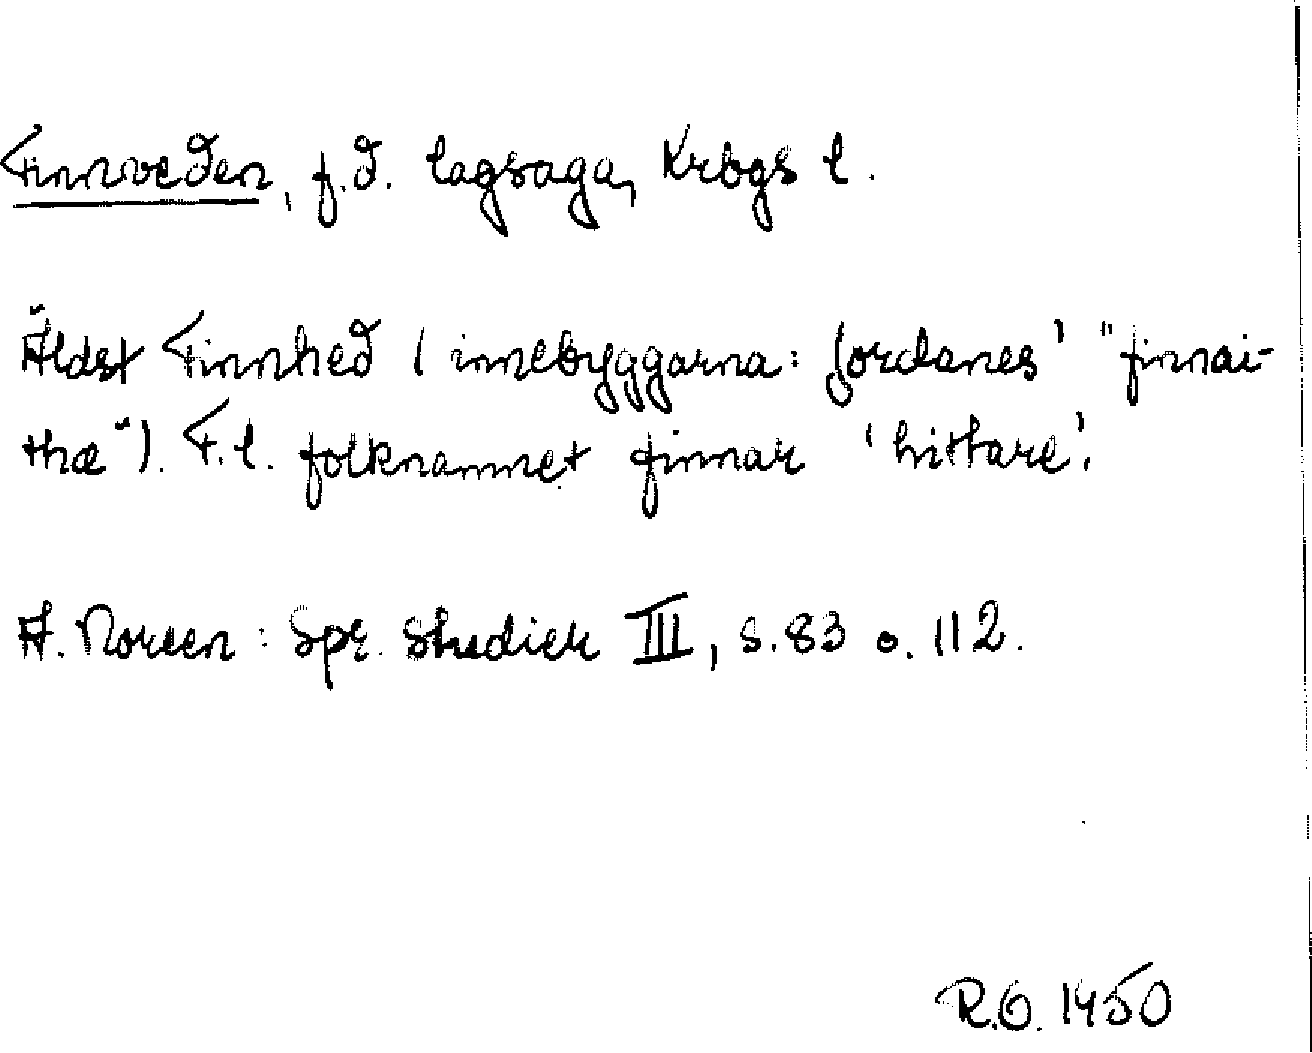 Finnveden, f.d. lagsaga, Krbgs l.
Äldst Finnhed (innebyggarna: Jordanes' "finnai-
thæ"). F.l. folknamnet finnar 'hittare'.
A. Noreen: Spr. Studier III, s. 83 o. 112.
R.O. 1950